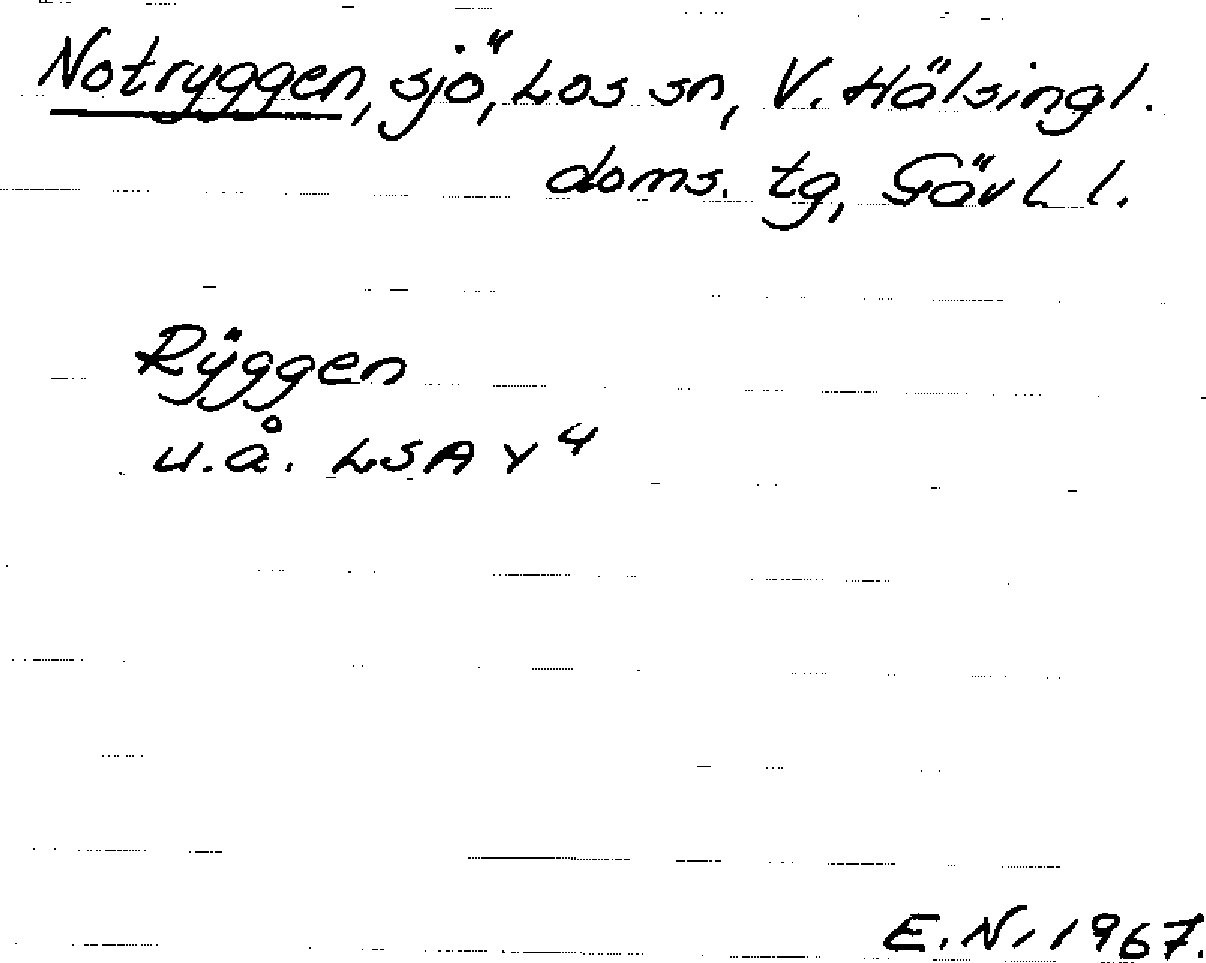 Notryggen, sjö, Los sn, V. Hälsingl.
doms. tg, Gävl l.
Rÿggen
u.å. LSA Y 4
E.N. 1967.